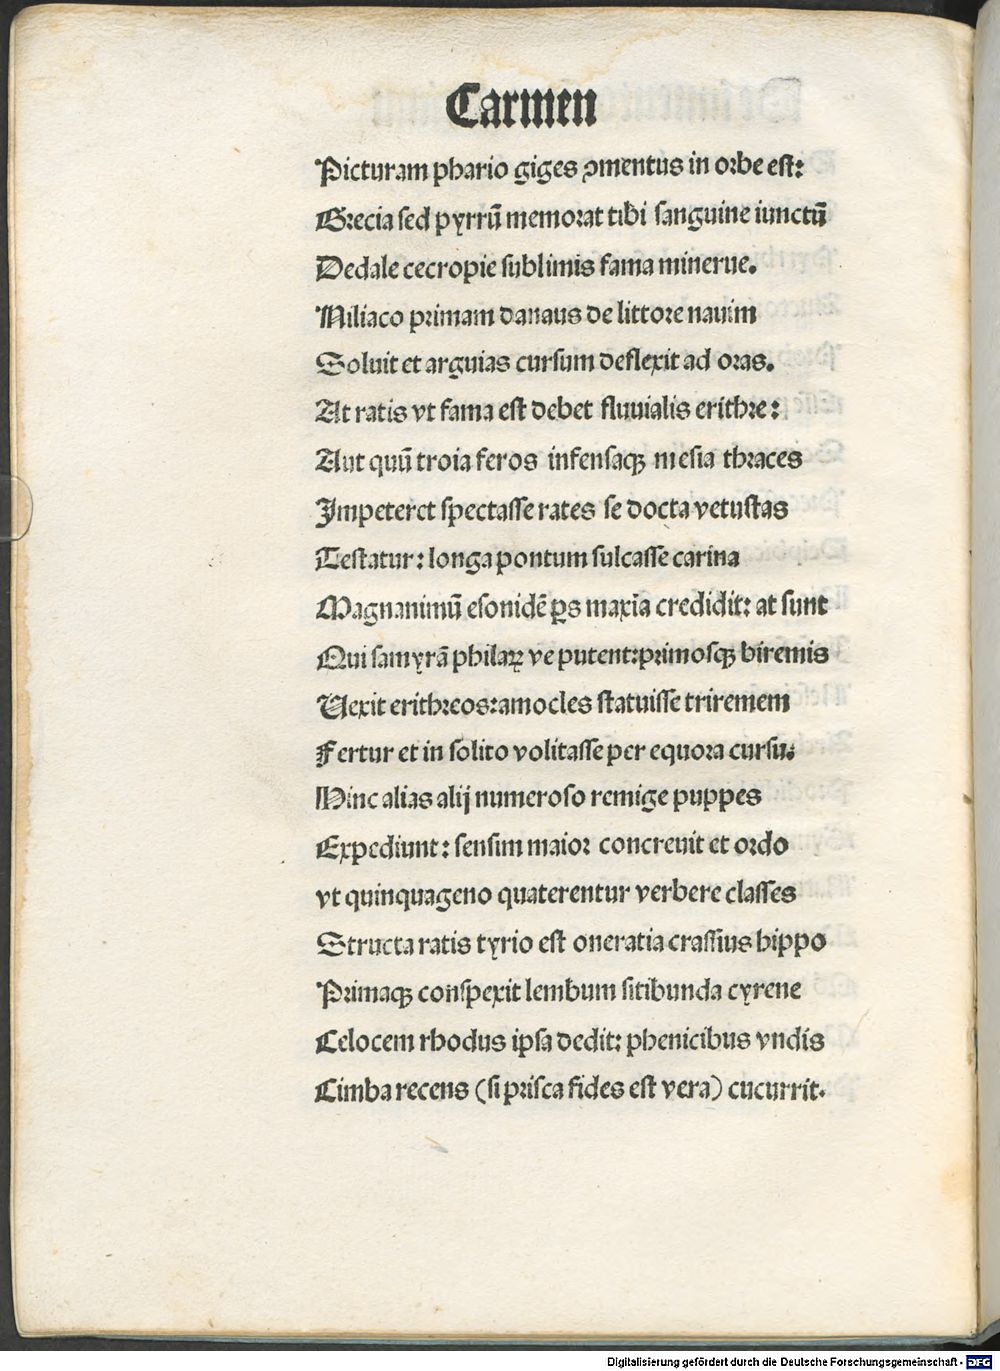 Carmen
Picturam phario giges ꝯmentus in orbe est:
Grecia sed pyrrū memorat tibi sanguine iunctū
Dedale cecropie sublimis fama minerue.
Miliaco primam danaus de littore nauim
Soluit et arguias cursum deflexit ad oras.
At ratis vt fama est debet fluuialis erithre:
Aut quū troia feros infensaqꝫ mesia thraces
Impeteret spectasse rates se docta vetustas
Testatur: longa pontum sulcasse carina
Magnanimū esonidē ꝑs maxīa credidit: at sunt
Qui samyrā philaꝝ ve putent: primosqꝫ biremis
Uexit erithreos: amocles statuisse triremem
Fertur et in solito volitasse per equora cursu.
Hinc alias alij numeroso remige puppes
Expediunt: sensim maior concreuit et ordo
vt quinquageno quaterentur verbere classes
Structa ratis tyrio est oneratia crassius hippo
Primaqꝫ conspexit lembum sitibunda cyrene
Celocem rhodus ipsa dedit: phenicibus vndis
Cimba recens (si prisca fides est vera) cucurrit.
Digitalisierung gefördert durch die Deutsche Forschungsgemeinschaft - DFG